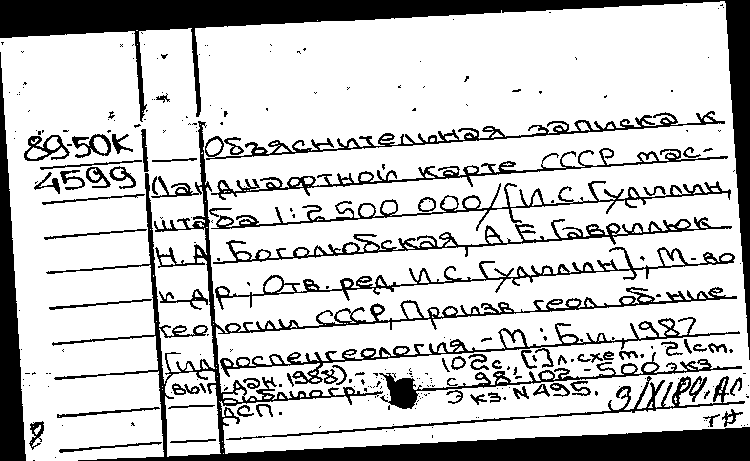 89-50К
4599
Объяснительная записка к
Ландшафтной карте СССР мас-
штаба 1:2 500 000/[И.С.Гудилин,
Н.А. Боголюбская, А.Е. Гаврилюк
и др.; Отв. ред. И.С. Гудилин]; М-во
геологии СССР, Произв. геол. об-ние
Гидроспецгеология.-М.: Б.и., 1987
(вып. дан. 1988).- 102с., [1] л. схем.; 21см.
Библиогр.: с. 98-102 - 500 экз.
ДСП. Экз. N 495. 3/XI89.АС
8 ТН